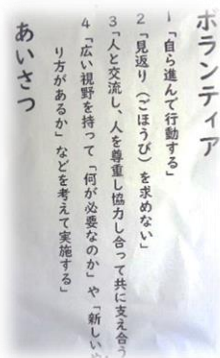 ボランティア
1「自ら進んで行動する」
2「見返り（ごほうび）を求めない」
3「人と交流し、人を尊重し協力し合って共に支え合う
4「広い視野を持って「何が必要なのか」や「新しいや
り方があるか」などを考えて実施する」
あいさつ